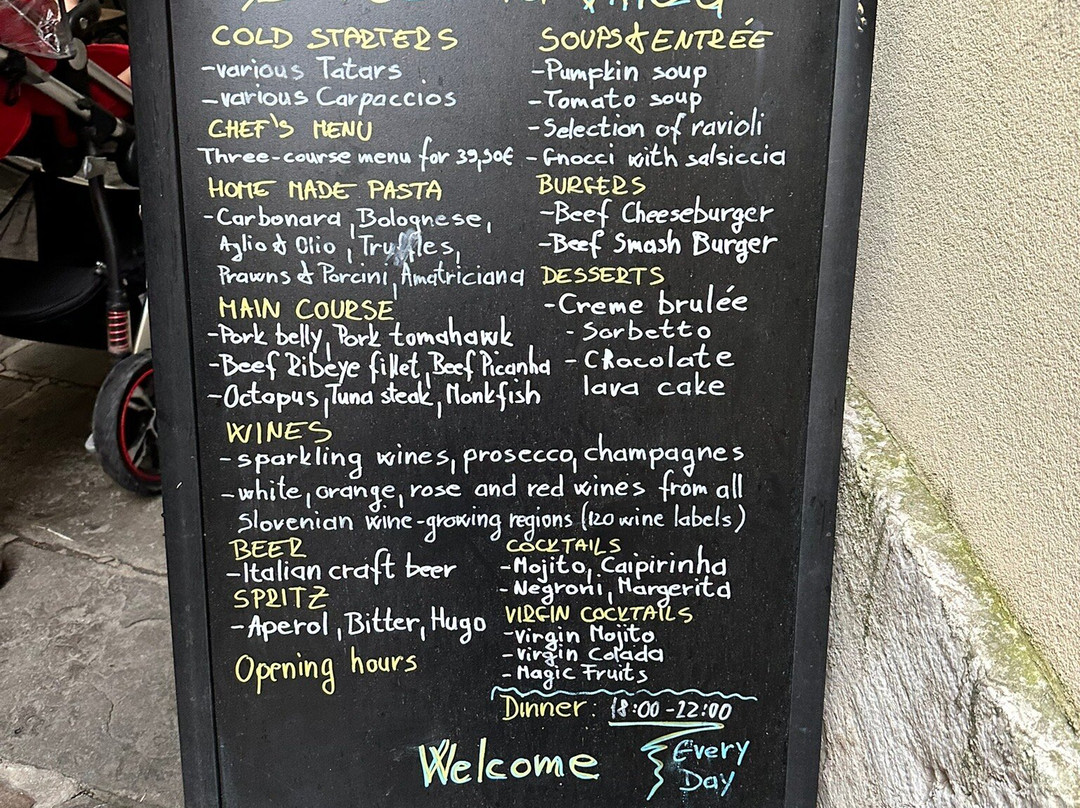 COLD STARTERS
-various Tatars
-various Carpaccios
CHEF'S MENU
Three-course menu for 39,90€
HOME MADE PASTA
-Carbonara, Bolognese,
Aglio & Olio, Truffles,
Prawns & Porcini, Amatriciana
MAIN COURSE
-Pork belly, Pork tomahawk
-Beef Ribeye fillet, Beef Picanha
-Octopus, Tuna steak, Monkfish
SOUPS & ENTRÉE
-Pumpkin soup
-Tomato soup
-Selection of ravioli
-Gnocci with salsiccia
BURGERS
-Beef Cheeseburger
-Beef Smash Burger
DESSERTS
-Creme brulée
-Sorbetto
-Chocolate
lava cake
WINES
-sparkling wines, prosecco, champagnes
-white, orange, rose and red wines from all
Slovenian wine-growing regions (120 wine labels)
BEER
-Italian craft beer
SPRITZ
-Aperol, Bitter, Hugo
COCKTAILS
-Mojito, Caipirinha
-Negroni, Margerita
VIRGIN COCKTAILS
-Virgin Mojito
-Virgin Colada
-Magic Fruits
Opening hours
Dinner: 18:00-22:00
Welcome
Every
Day